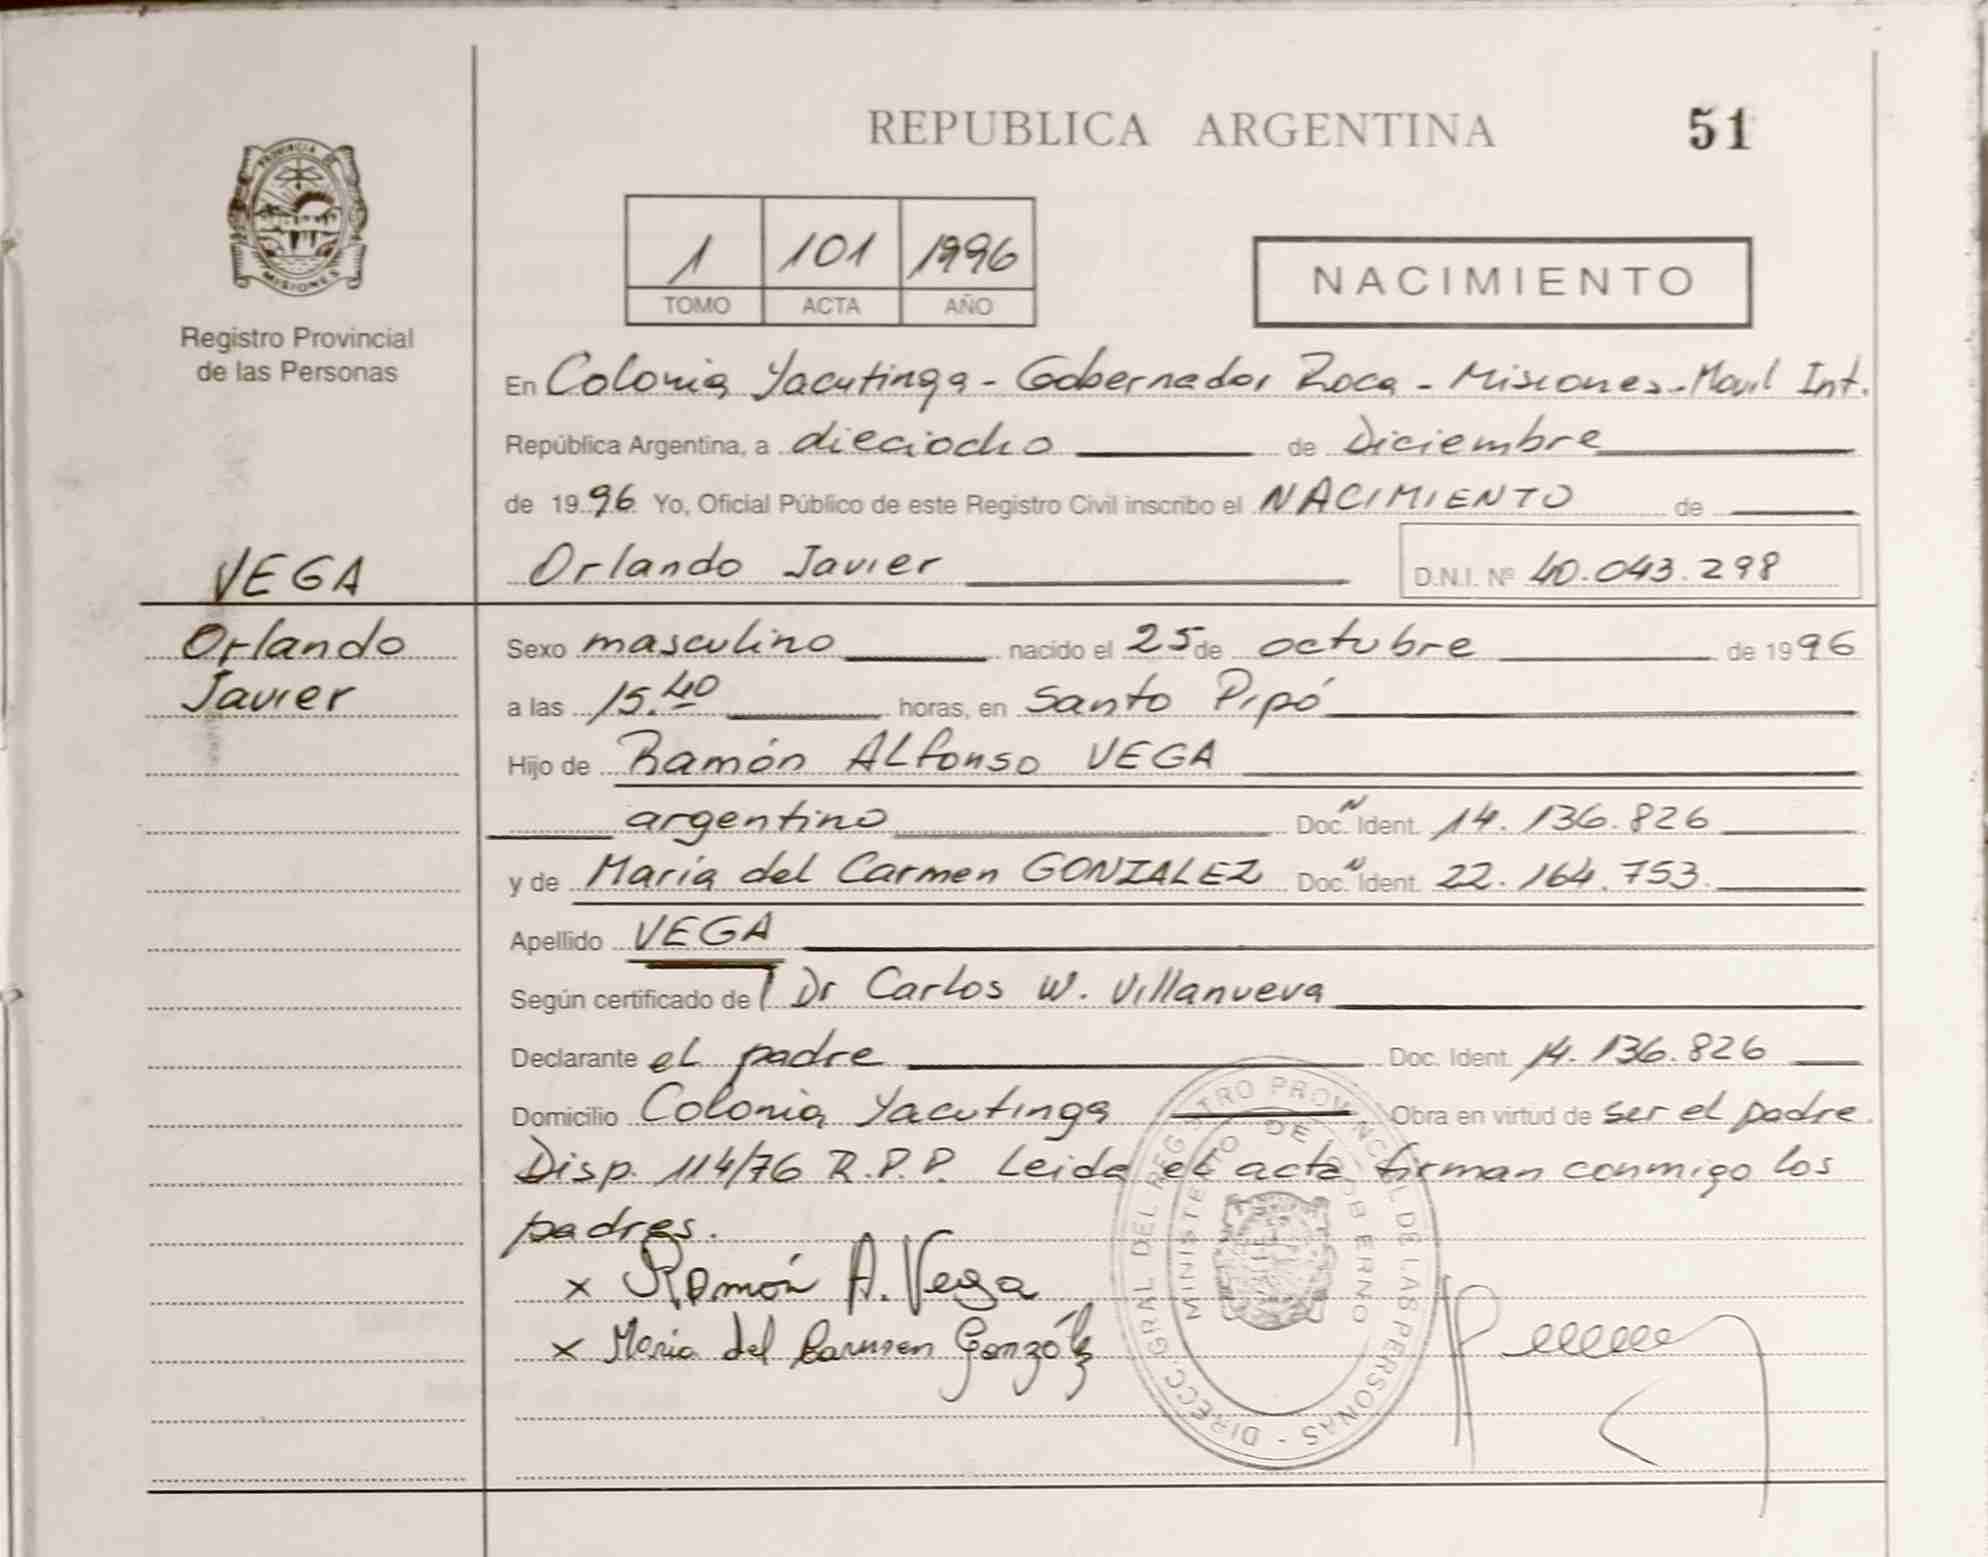 REPUBLICA ARGENTINA 51
PROVINCIA DE
MISIONES
Registro Provincial
de las Personas
1 101 1996
TOMO ACTA AÑO
NACIMIENTO
En Colonia Yacutinga - Gobernador Roca - Misiones - Movil Int.
República Argentina, a dieciocho de Diciembre
de 1996 Yo, Oficial Público de este Registro Civil inscribo el NACIMIENTO de
VEGA
Orlando Javier D.N.I. Nº 40.043.298
Orlando
Javier
Sexo masculino nacido el 25 de octubre de 1996
a las 15.40 horas, en Santo Pipó
Hijo de Ramón ALfonso VEGA
argentino Doc. N Ident. 14.136.826
y de María del Carmen GONZALEZ Doc. N Ident. 22.164.753
Apellido VEGA
Según certificado de Dr Carlos W. Villanueva
Declarante el padre Doc. Ident. 14.136.826
Domicilio Colonia Yacutinga Obra en virtud de ser el padre.
Disp. 114/76 R.P.P. Leida el acta firman conmigo los
padres.
x Ramón A. Vega
x Maria del Carmen González
DIRECC. GRAL DEL REGISTRO PROVINCIAL DE LAS PERSONAS -
MINISTERIO DE GOBIERNO